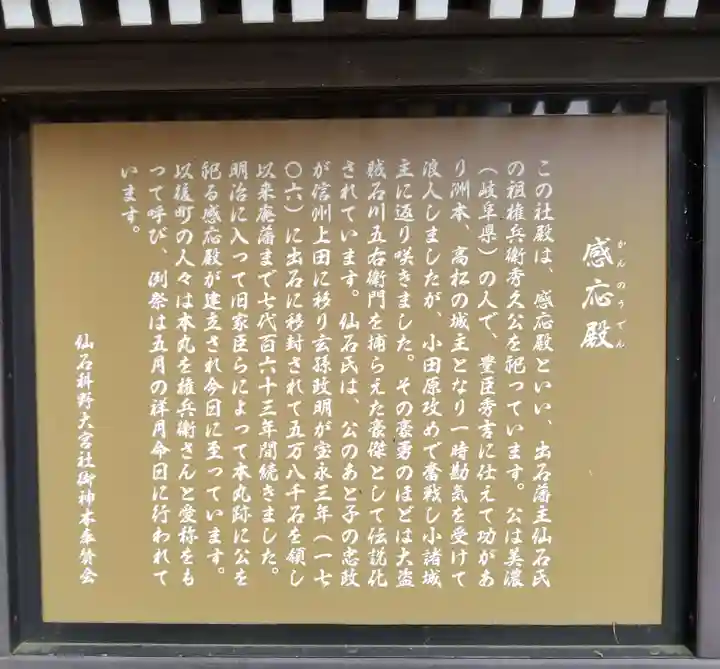 感応殿
かんのうでん
この社殿は、感応殿といい、出石藩主仙石氏
の祖権兵衛秀久公を祀っています。公は美濃
(岐阜県)の人で、豊臣秀吉に仕えて功があ
り洲本、高松の城主となり一時勘気を受けて
浪人しましたが、小田原攻めで奮戦し小諸城
主に返り咲きました。その豪勇のほどは大盗
賊石川五右衛門を捕らえた豪傑として伝説化
されています。仙石氏は、公のあと子の忠政
が信州上田に移り玄孫政明が宝永三年(一七
〇六)に出石に移封されて五万八千石を領し
以来廃藩まで七代百六十三年間続きました。
明治に入って旧家臣らによって本丸跡に公を
祀る感応殿が建立され今日に至っています。
以後町の人々は本丸を権兵衛さんと愛称をも
って呼び、例祭は五月の祥月命日に行われて
います。
仙石科野大宮社御神本奉賛会